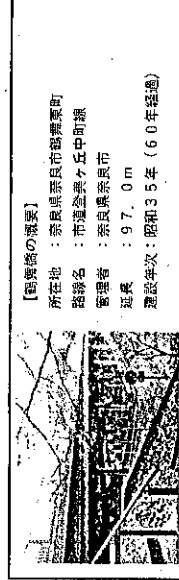 【鶴舞橋の概要】
所在地　：奈良県奈良市鶴舞東町
路線名　：市道登美ヶ丘中町線
管理者　：奈良県奈良市
延長　　：97．0m
建設年次：昭和35年（60年経過）